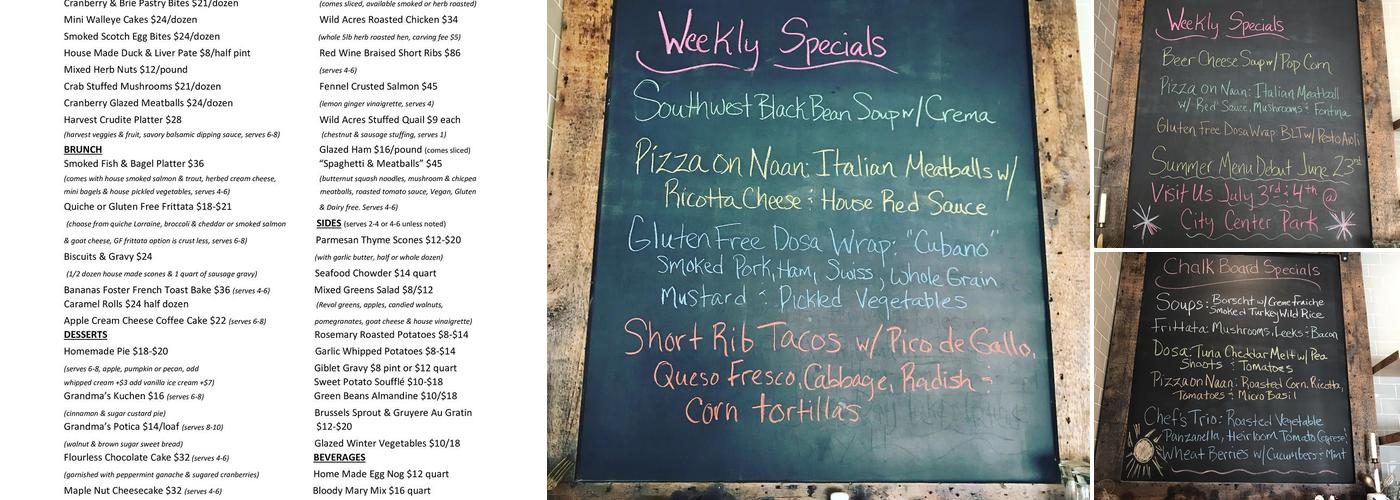 Cranberry & Brie Pastry Bites $21/dozen
Mini Walleye Cakes $24/dozen
Smoked Scotch Egg Bites $24/dozen
House Made Duck & Liver Pate $8/half pint
Mixed Herb Nuts $12/pound
Crab Stuffed Mushrooms $21/dozen
Cranberry Glazed Meatballs $24/dozen
Harvest Crudite Platter $28
(harvest veggies & fruit, savory balsamic dipping sauce, serves 6-8)
BRUNCH
Smoked Fish & Bagel Platter $36
(comes with house smoked salmon & trout, herbed cream cheese,
mini bagels & house pickled vegetables, serves 4-6)
Quiche or Gluten Free Frittata $18-$21
(choose from quiche Lorraine, broccoli & cheddar or smoked salmon
& goat cheese, GF frittata option is crust less, serves 6-8)
Biscuits & Gravy $24
(1/2 dozen house made scones & 1 quart of sausage gravy)
Bananas Foster French Toast Bake $36 (serves 4-6)
Caramel Rolls $24 half dozen
Apple Cream Cheese Coffee Cake $22 (serves 6-8)
DESSERTS
Homemade Pie $18-$20
(serves 6-8, apple, pumpkin or pecan, add
whipped cream +$3 add vanilla ice cream +$7)
Grandma's Kuchen $16 (serves 6-8)
(cinnamon & sugar custard pie)
Grandma's Potica $14/loaf (serves 8-10)
(walnut & brown sugar sweet bread)
Flourless Chocolate Cake $32 (serves 4-6)
(garnished with peppermint ganache & sugared cranberries)
Maple Nut Cheesecake $32 (serves 4-6)
(comes sliced, available smoked or herb roasted)
Wild Acres Roasted Chicken $34
(whole 5lb herb roasted hen, carving fee $5)
Red Wine Braised Short Ribs $86
(serves 4-6)
Fennel Crusted Salmon $45
(lemon ginger vinaigrette, serves 4)
Wild Acres Stuffed Quail $9 each
(chestnut & sausage stuffing, serves 1)
Glazed Ham $16/pound (comes sliced)
"Spaghetti & Meatballs" $45
(butternut squash noodles, mushroom & chicpea
meatballs, roasted tomato sauce, Vegan, Gluten
& Dairy free. Serves 4-6)
SIDES (serves 2-4 or 4-6 unless noted)
Parmesan Thyme Scones $12-$20
(with garlic butter, half or whole dozen)
Seafood Chowder $14 quart
Mixed Greens Salad $8/$12
(Revol greens, apples, candied walnuts,
pomegranates, goat cheese & house vinaigrette)
Rosemary Roasted Potatoes $8-$14
Garlic Whipped Potatoes $8-$14
Giblet Gravy $8 pint or $12 quart
Sweet Potato Soufflé $10-$18
Green Beans Almandine $10/$18
Brussels Sprout & Gruyere Au Gratin
$12-$20
Glazed Winter Vegetables $10/18
BEVERAGES
Home Made Egg Nog $12 quart
Bloody Mary Mix $16 quart
Weekly Specials
Southwest Black Bean Soup w/ Crema
Pizza on Naan: Italian Meatballs w/
Ricotta Cheese & House Red Sauce
Gluten Free Dosa Wrap: "Cubano"
Smoked Pork, Ham, Swiss, Whole Grain
Mustard & Pickled Vegetables
Short Rib Tacos w/ Pico de Gallo,
Queso Fresco, Cabbage, Radish &
Corn tortillas
Weekly Specials
Beer Cheese Soup w/ Pop Corn
Pizza on Naan: Italian Meatball
w/ Red Sauce, Mushrooms & Fontina
Gluten Free Dosa Wrap: BLT w/ Pesto Aioli
Summer Menu Debut June 23rd
Visit Us July 3rd & 4th @
City Center Park
Chalk Board Specials
Soups: Borscht w/ Creme Fraiche
Smoked Turkey Wild Rice
Frittata: Mushrooms, Leeks & Bacon
Dosa: Tuna Cheddar Melt w/ Pea
Shoots & Tomatoes
Pizza on Naan: Roasted Corn, Ricotta,
Tomatoes & Micro Basil
Chef's Trio: Roasted Vegetable
Panzanella, Heirloom Tomato Caprese,
Wheat Berries w/ Cucumbers & Mint